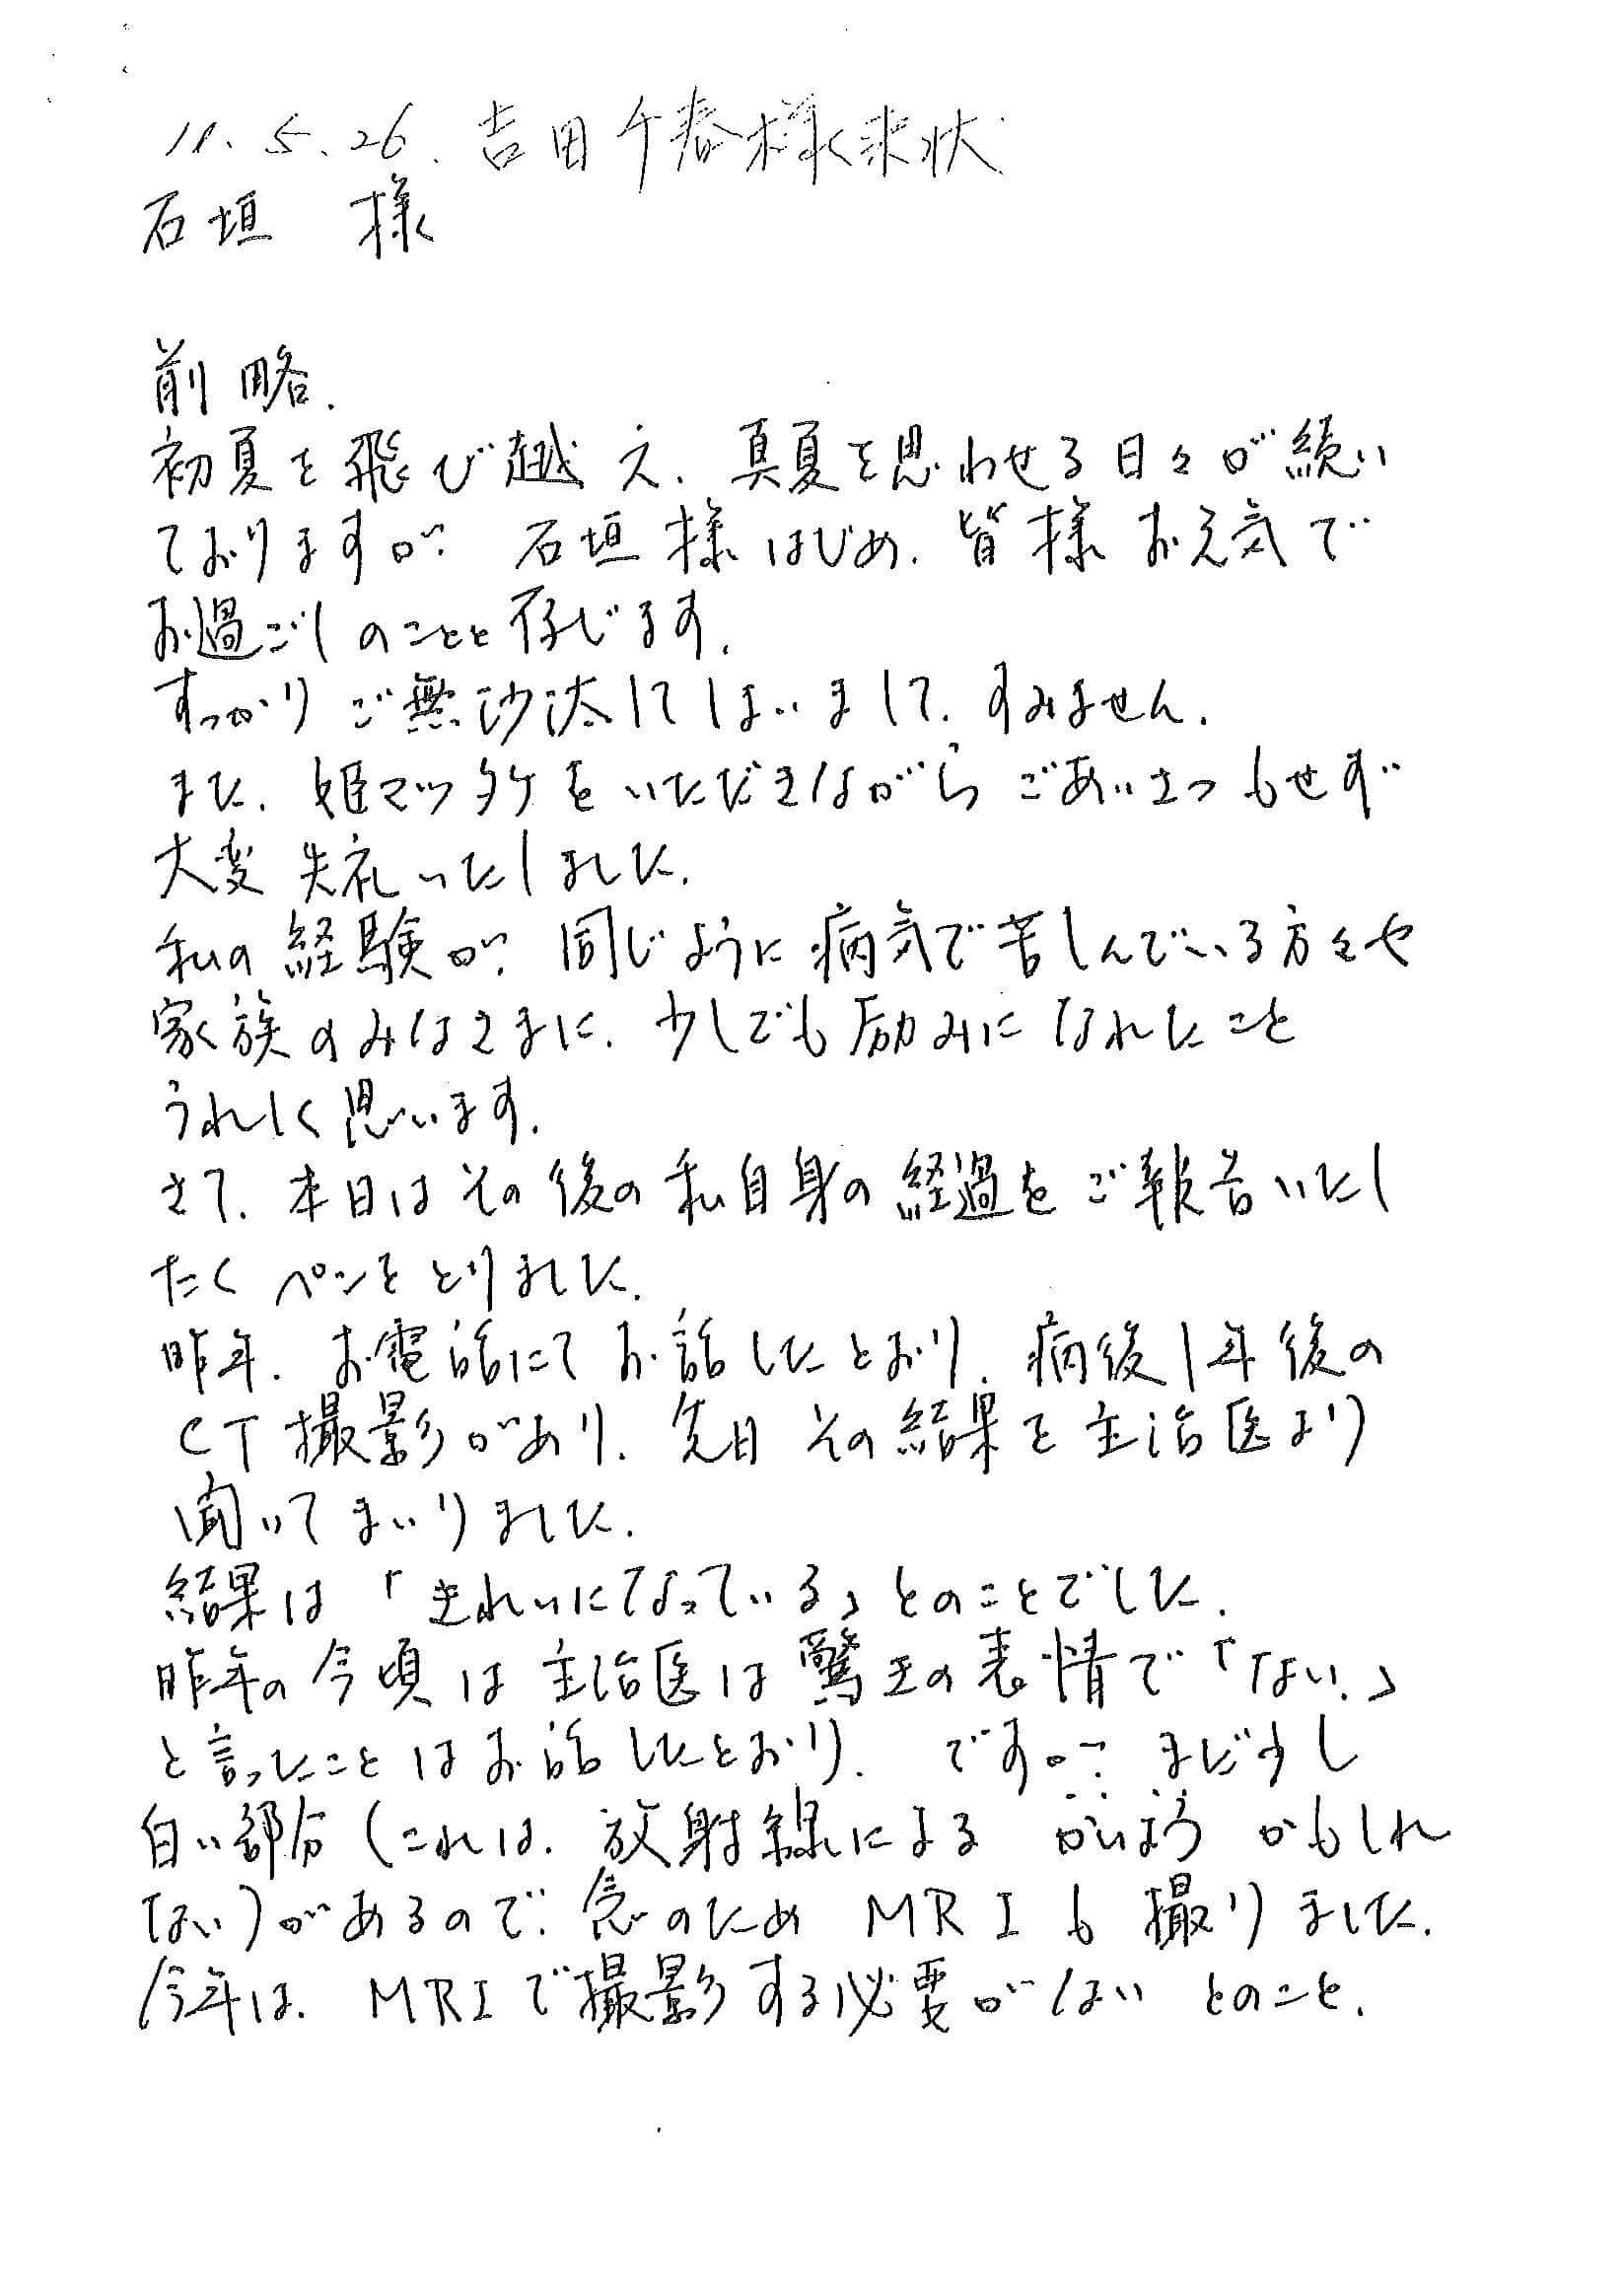 11.5.26. 吉田千春様来状
石垣 様
前略.
初夏を飛び越え、真夏を思わせる日々が続い
ておりますが、石垣様はじめ、皆様お元気で
お過ごしのことと存じます.
すっかりご無沙汰してしまいまして、すみません.
また、姫マツタケをいただきながらごあいさつもせず
大変失礼いたしました.
私の経験が、同じように病気で苦しんでいる方々や
家族のみなさまに、少しでも励みになれたこと
うれしく思います.
さて、本日はその後の私自身の経過をご報告いたし
たくペンをとりました.
昨年、お電話にてお話したとおり、病後1年後の
CT撮影があり、先日その結果を主治医より
聞いてまいりました.
結果は「きれいになっている」とのことでした.
昨年の今頃は主治医は驚きの表情で「ない.」
と言ったことはお話したとおり、ですが、まだ少し
白い部分(これは、放射線によるかいようかもしれ
ない)があるので、念のためMRIも撮りました.
今年は、MRIで撮影する必要がないとのこと.